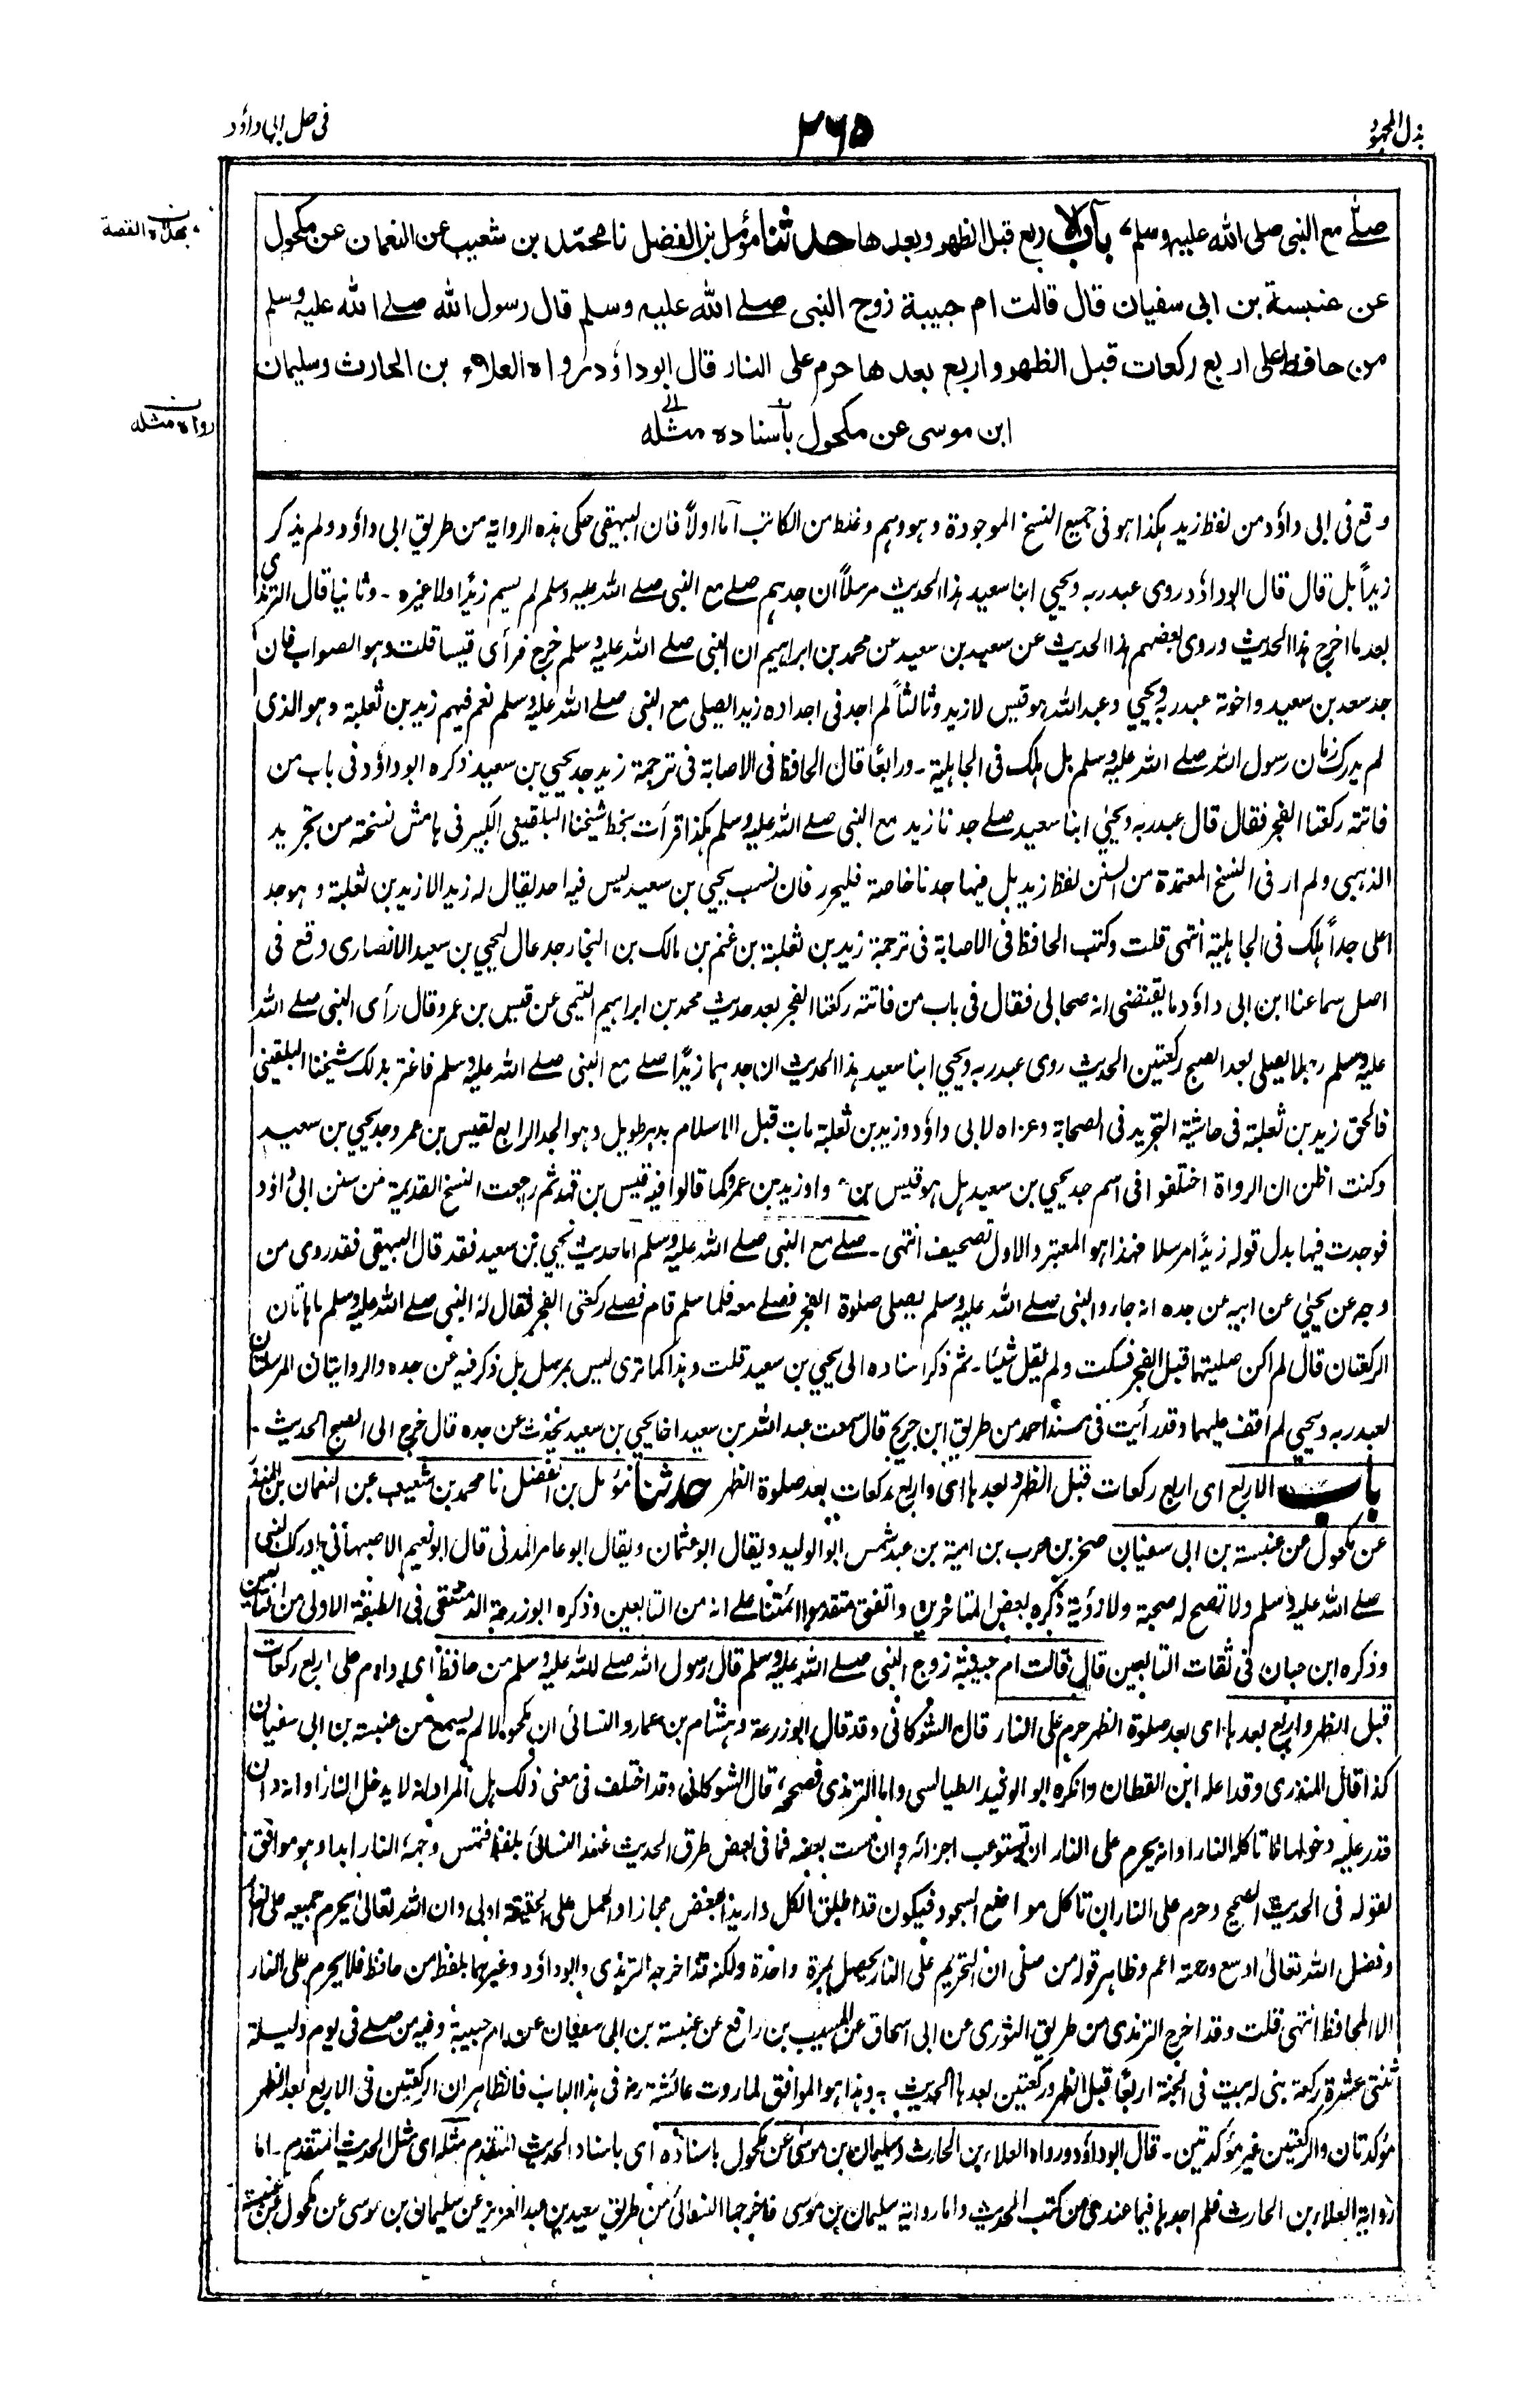 بذل المجهود
٢٦٥
في حل ابي داؤد
صلى مع النبي صلى الله عليه وسلم باب الاربع قبل الظهر وبعدها حدثنا مؤمل بن الفضل نا محمد بن شعيب عن النعمان عن مكحول
بهذه القصة
عن عنبسة بن ابي سفيان قال قالت ام حبيبة زوج النبي صلے الله عليه وسلم قال رسول الله صلے الله عليه وسلم
من حافظ على اربع ركعات قبل الظهر واربع بعدها حرم على النار قال ابو داؤد رواه العلاء بن الحارث وسليمان
رواه مثله
ابن موسى عن مكحول باسناده مثله
وقع في ابي داؤد من لفظ زيد هكذا هو في جميع النسخ الموجودة وهو وهم وغلط من الكاتب اما اولاً فان البيهقي حكى هذه الرواية من طريق ابي داؤد ولم يذكر
زيداً بل قال قال ابو داؤد روى عبد ربه ويحيى ابنا سعيد هذا الحديث مرسلاً ان جدهم صلے مع النبي صلے الله عليه وسلم لم يسم زيداً ولا غيره ۔ وثانيا قال الترمذي
بعد ما اخرج هذا الحديث وروى بعضهم هذا الحديث عن سعد بن سعيد عن محمد بن ابراهيم ان النبي صلے الله عليه وسلم خرج فرأى قيسا قلت وهو الصواب فان
جد سعد بن سعيد واخوته عبد ربه ويحيى وعبد الله هو قيس لا زيد وثالثاً لم اجد في اجداده زيد اصلي مع النبي صلے الله عليه وسلم نعم فيهم زيد بن ثعلبة وهو الذي
لم يدرك زمان رسول الله صلے الله عليه وسلم بل هلك في الجاهلية ۔ ورابعاً قال الحافظ في الاصابة في ترجمة زيد جد يحيى بن سعيد ذكره ابو داؤد في باب من
فاتته ركعتا الفجر فقال قال عبد ربه ويحيى ابنا سعيد صلے جدنا زيد مع النبي صلے الله عليه وسلم هكذا قرأت بخط شيخنا البلقيني الكبير في هامش نسخته من تجريد
الذهبي ولم ار في النسخ المعتمدة من السنن لفظ زيد بل فيها جدنا خاصة فليحرر فان نسب يحيى بن سعيد ليس فيه احد يقال له زيد الا زيد بن ثعلبة وهو جد
اعلى جداً هلك في الجاهلية انتهى قلت وكتب الحافظ في الاصابة في ترجمة زيد بن ثعلبة بن غنم بن مالك بن النجار جد عال ليحيى بن سعيد الانصاري وقع في
اصل سماعنا ابن ابي داؤد ما يقتضي انه صحابي فقال في باب من فاتته ركعتا الفجر بعد حديث محمد بن ابراهيم التيمي عن قيس بن عمرو قال رأى النبي صلے الله
عليه وسلم رجلا يصلي بعد الصبح ركعتين الحديث روى عبد ربه ويحيى ابنا سعيد هذا الحديث ان جدهما زيداً صلے مع النبي صلے الله عليه وسلم فاغتر بذلك شيخنا البلقيني
فالحق زيد بن ثعلبة في حاشية التجريد في الصحابة وعزاه لابي داؤد وزيد بن ثعلبة مات قبل الاسلام بدهر طويل وهو الجد الرابع لقيس بن عمرو جد يحيى بن سعيد
وكنت اظن ان الرواة اختلفوا في اسم جد يحيى بن سعيد هل هو قيس بن او زيد بن عمرو كما قالوا فيه قيس بن قهد ثم رجعت النسخ القديمة من سنن ابي داؤد
فوجدت فيها بدل قوله زيداً مرسلا فهذا هو المعتبر والاول تصحيف انتهى ۔ صلے مع النبي صلے الله عليه وسلم اما حديث يحيى بن سعيد فقد قال البيهقي فقد روى من
وجه عن يحيى عن ابيه عن جده انه جاء والنبي صلے الله عليه وسلم يصلي صلوة الفجر فصلے معه فلما سلم قام فصلے ركعتي الفجر فقال له النبي صلے الله عليه وسلم ما هاتان
الركعتان قال لم اكن صليتهما قبل الفجر فسكت ولم يقل شيئا ۔ ثم ذكر اسناده الى يحيى بن سعيد قلت وهذا كما ترى ليس بمرسل بل ذكر فيه عن جده والروايتان المرسلتان
لعبد ربه ويحيى لم اقف عليهما وقد رأيت في مسند احمد من طريق ابن جريج قال سمعت عبد الله بن سعيد اخا يحيى بن سعيد يحدث عن جده قال خرج الى الصبح الحديث ۔
باب الاربع اى اربع ركعات قبل الظهر وبعدها اى واربع ركعات بعد صلوة الظهر حدثنا مؤمل بن الفضل نا محمد بن شعيب عن النعمان بن المنذر
عن مكحول عن عنبسة بن ابي سفيان صخر بن حرب بن امية بن عبد شمس ابو الوليد ويقال ابو عثمان ويقال ابو عامر المدني قال ابو نعيم الاصبهاني ادرك النبي
صلے الله عليه وسلم ولا تصح له صحبة ولا رؤية ذكره بعض المتاخرين واتفق متقدموا ائمتنا على انه من التابعين وذكره ابو زرعة الدمشقي في الطبقة الاولى من التابعين
وذكره ابن حبان في ثقات التابعين قال قالت ام حبيبة زوج النبي صلے الله عليه وسلم قال رسول الله صلے الله عليه وسلم من حافظ اى داوم على اربع ركعات
قبل الظهر واربع بعدها اى بعد صلوة الظهر حرم على النار قال الشوكاني وقد قال ابو زرعة وهشام بن عمار والنسائي ان مكحولا لم يسمع من عنبسة بن ابي سفيان
كذا قال المنذري وقد اعله ابن القطان وانكره ابو الوليد الطيالسي واما الترمذي فصححه قال الشوكاني وقد اختلف في معنى ذلك هل المراد انه لا يدخل النار او انه وان
قدر عليه دخولها لا تاكله النار او انه يحرم على النار ان تستوعب اجزائه وان مست بعضه كما في بعض طرق الحديث عند النسائي بلفظ فتمس وجهه النار ابدا وهو موافق
لقوله في الحديث الصحيح وحرم على النار ان تاكل مواضع السجود فيكون قد اطلق الكل واريد البعض مجازا والحمل على الحقيقة اولى وان الله تعالى يحرم جميعه على النار
وفضل الله تعالى اوسع ورحمته اعم وظاهر قوله من صلى ان التحريم على النار يحصل بمرة واحدة ولكنه قد اخرجه الترمذي وابو داؤد وغيرهما بلفظ من حافظ فلا يحرم على النار
الا المحافظ انتهى قلت وقد اخرج الترمذي من طريق الثوري عن ابي اسحاق عن المسيب بن رافع عن عنبسة بن ابي سفيان عن ام حبيبة وفيه من صلے في يوم وليلة
ثنتي عشرة ركعة بنى له بيت في الجنة اربعا قبل الظهر وركعتين بعدها الحديث وهذا هو الموافق لما روت عائشة رض في هذا الباب فالظاهر ان الركعتين في الاربع بعد الظهر
مؤكدتان والركعتين غير مؤكدتين ۔ قال ابو داؤد ورواه العلاء بن الحارث وسليمان بن موسى عن مكحول باسناده اى باسناد الحديث المتقدم مثله اى مثل الحديث المتقدم ۔ اما
رواية العلاء بن الحارث فلم اجدها فيما عندي من كتب الحديث واما رواية سليمان بن موسى فاخرجها النسائي من طريق سعيد بن عبد العزيز عن سليمان بن موسى عن مكحول عن عنبسة